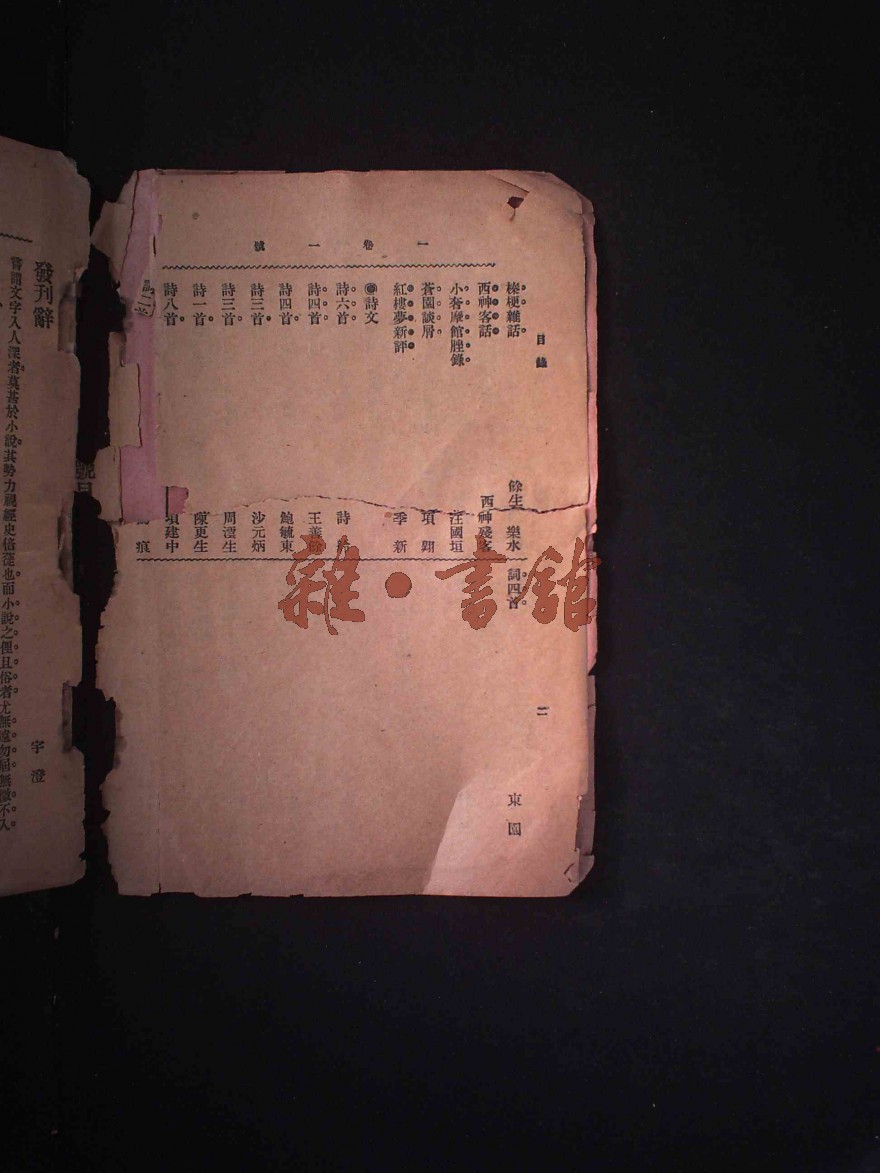 目錄
二
一卷一號
榛梗雜話 餘生 樂水
西神客話 西神殘客
小奢摩館脞錄 汪國垣
蒼園談屑 項翺
紅樓夢新評 季新
◉詩文
詩六首 詩
詩四首 王善餘
詩四首 鮑毓東
詩三首 沙元炳
詩三首 周澐生
詩一首 陳更生
詩八首 項建中
痕
詞四首 東園
發刊辭
宇澄
嘗謂文字入人深者莫甚於小說其勢力視經史倍蓰也而小說之俚且俗者尤無遠勿屆無微不入
雜·書館